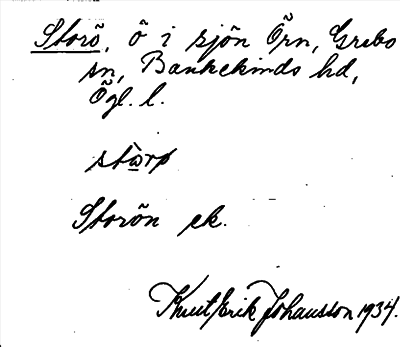 Storö, ö i sjön Örn, Grebo
sn, Bankekinds hd,
Ögl. l.
Storön ek.
Knut Erik Johansson 1934.